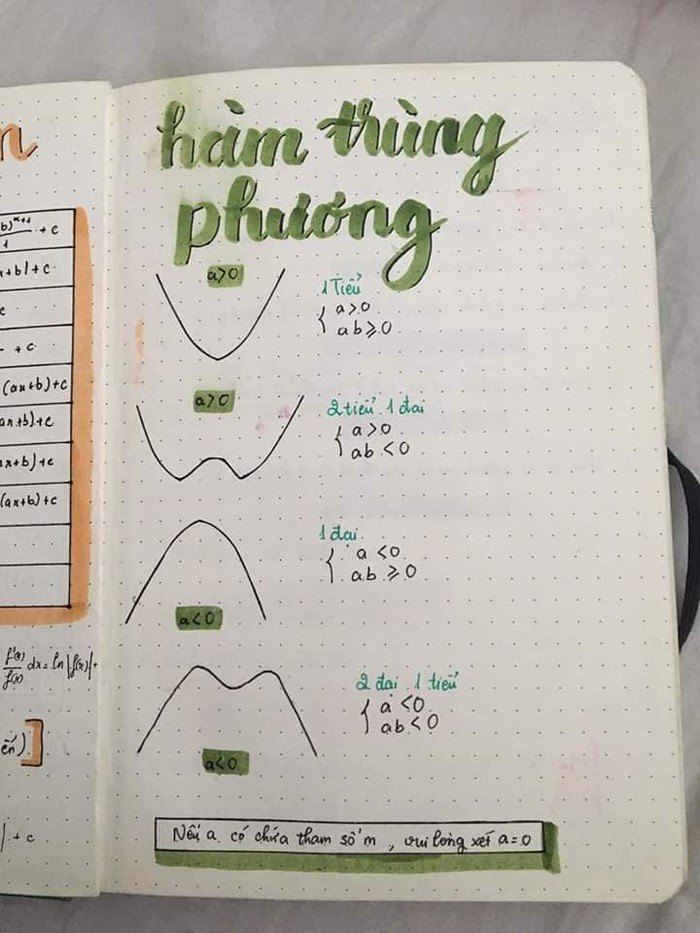 n
b)ˣ⁺¹ + c
1
x+b|+c
c
+ c
(ax+b)+c
ax+b)+c
ax+b)+c
(ax+b)+c
f'(x)/f(x) dx = ln|f(x)|+
]
| + c
hàm trùng
phương
a>0
1 Tiểu
a>0
ab≥0
a>0
2 tiểu 1 đại
a>0
ab<0
1 đại
a<0
ab≥0
a<0
2 đại 1 tiểu
a<0
ab<0
a<0
Nếu a có chứa tham số m, vui lòng xét a=0